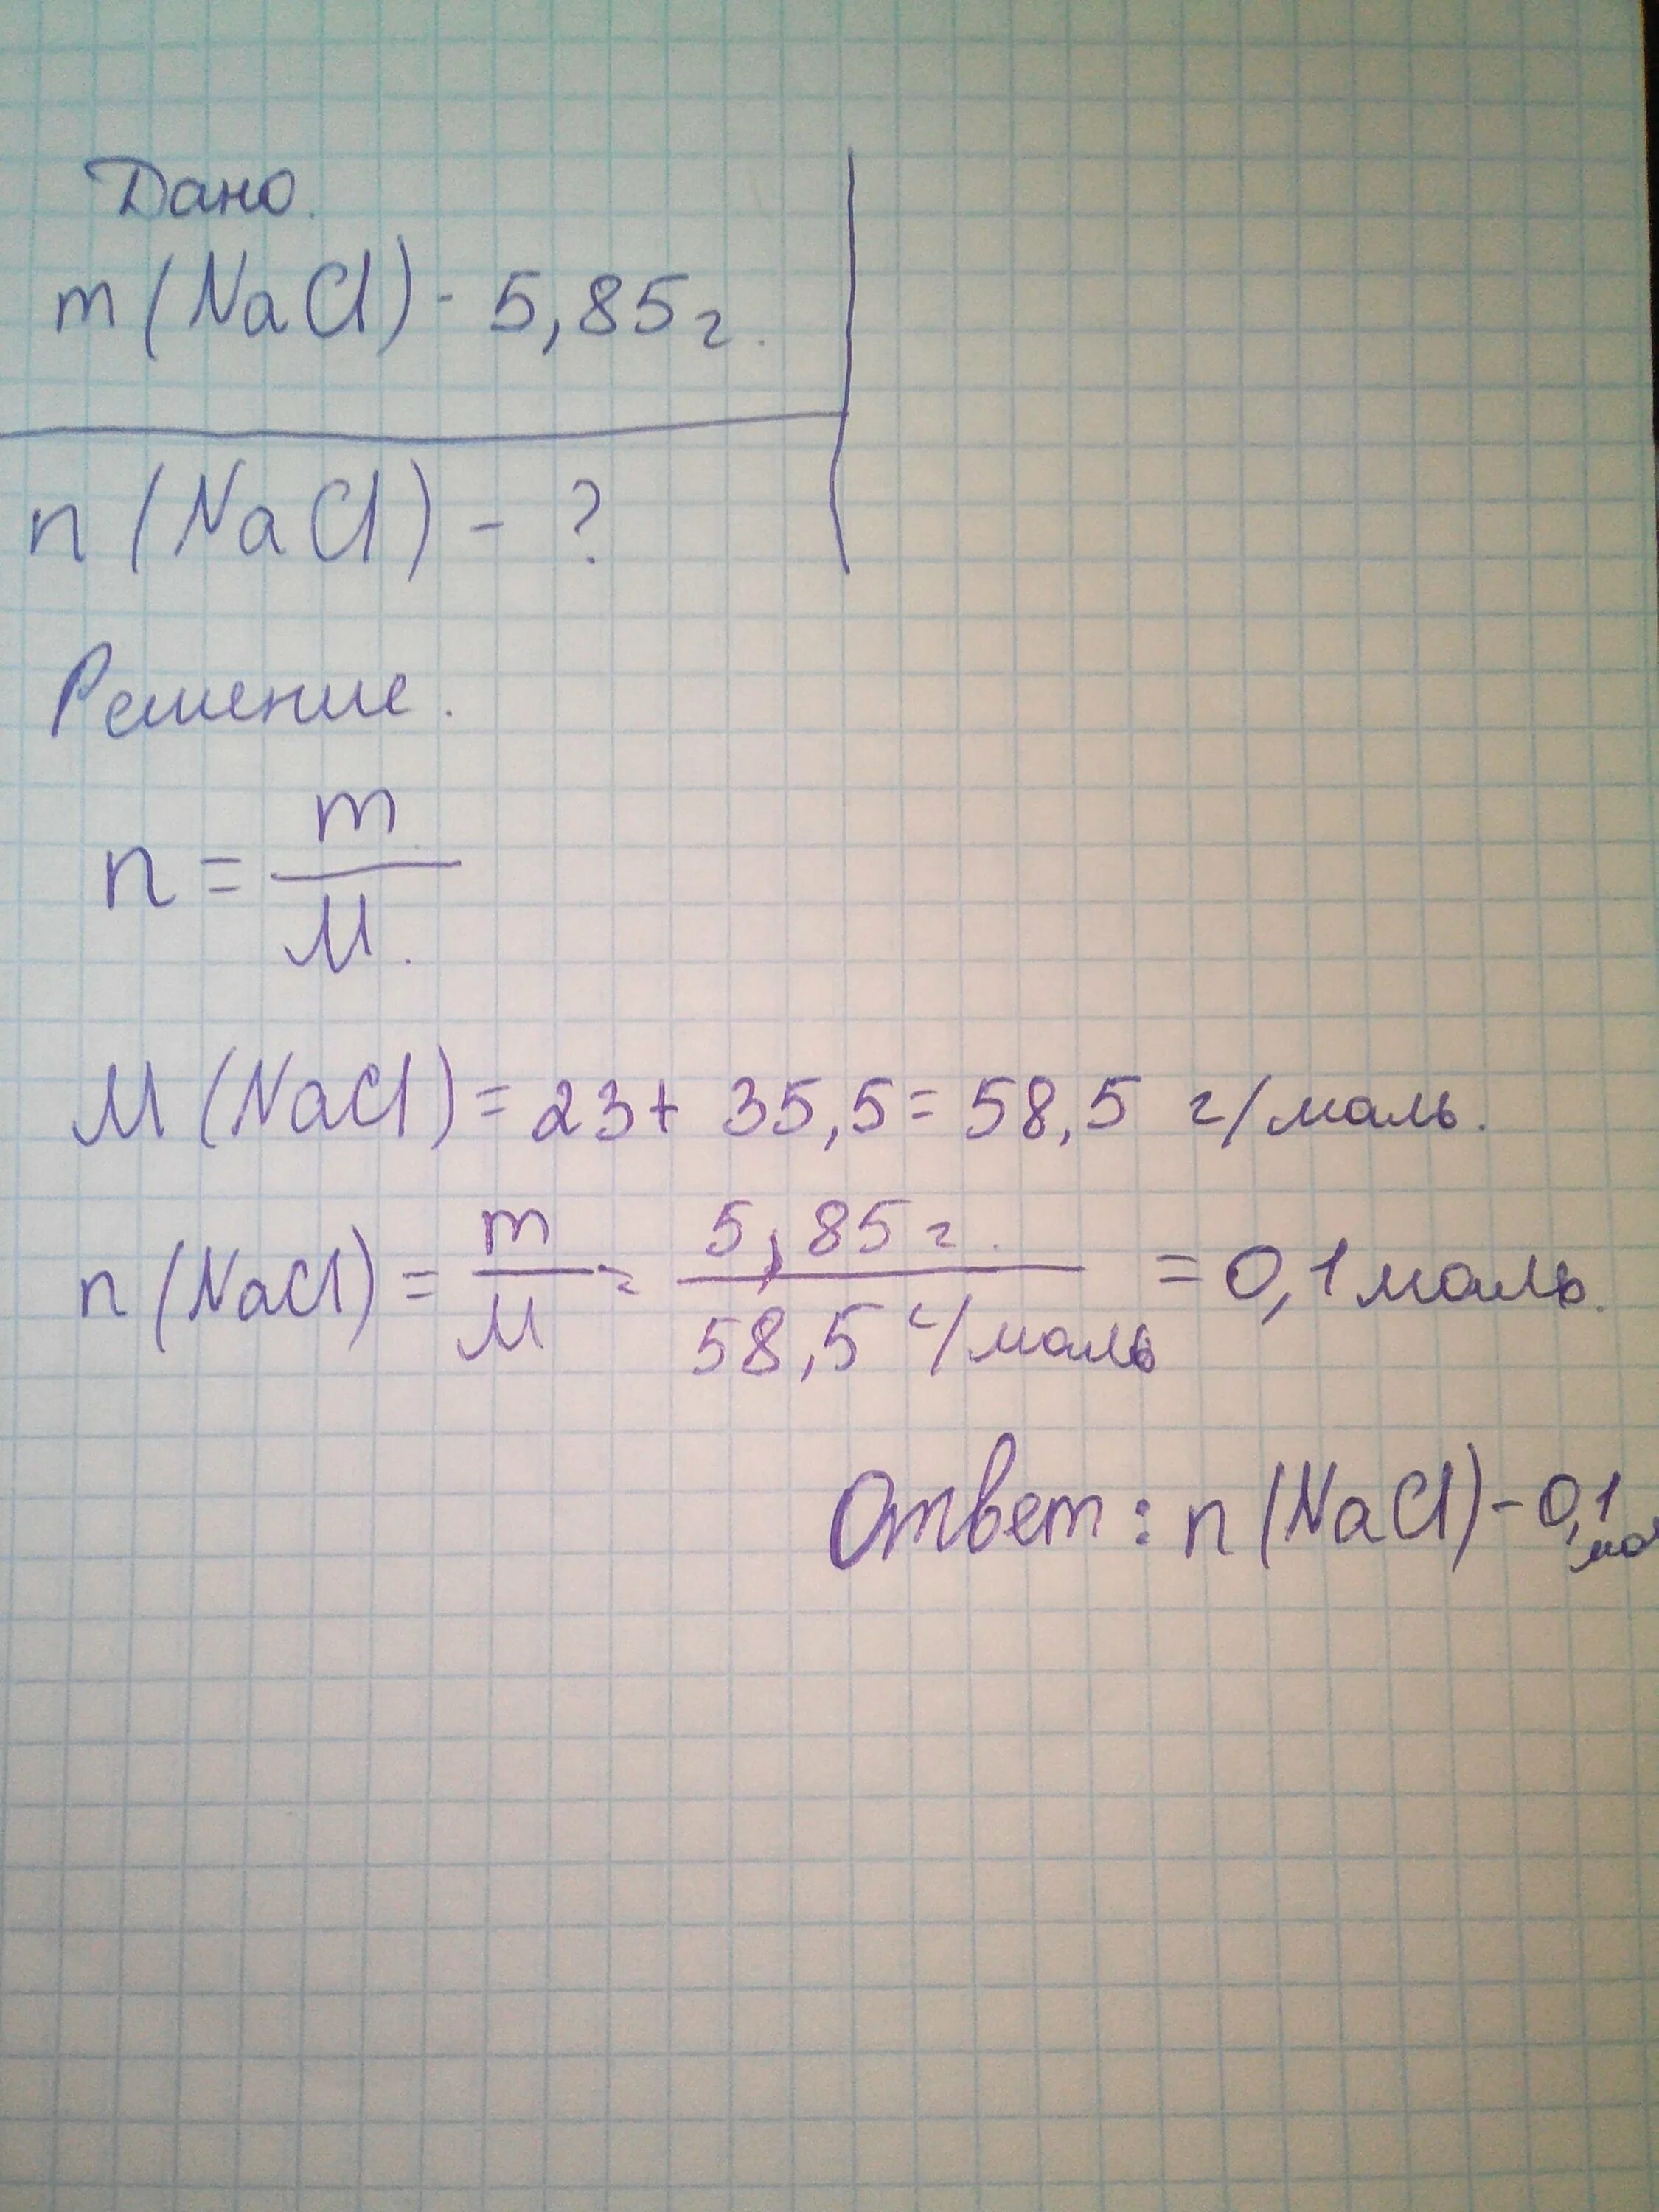 Дано.
m (NaCl) - 5,85 г.
n (NaCl) - ?
Решение.
n = m / M.
M (NaCl) = 23 + 35,5 = 58,5 г/моль.
n (NaCl) = m / M = 5,85 г. / 58,5 г/моль = 0,1 моль.
Ответ: n (NaCl) - 0,1